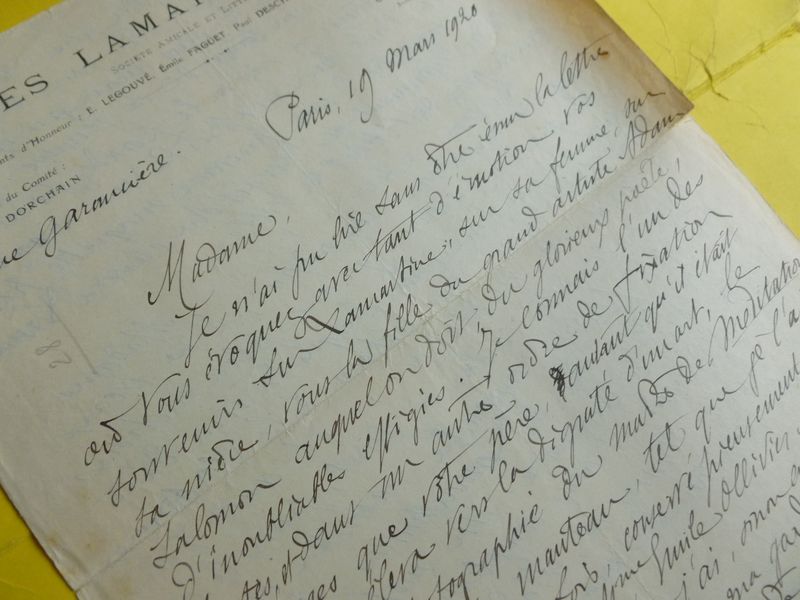 ES LAMA
SOCIÉTÉ AMICALE ET LITT
nts d'Honneur : E. LEGOUVÉ, Émile FAGUET, Paul DESCH
du Comité :
DORCHAIN
ue Garancière.
Paris, 19 Mars 1920
28
Madame,
Je n'ai pu lire sans être ému la lettre
où vous évoquez avec tant d'émotion vos
souvenirs sur Lamartine, sur sa femme, sur
sa nièce, vous la fille du grand artiste Adam
Salomon auquel on doit, du glorieux poète,
d'inoubliables effigies. Je connais l'un des
tes, et dans un autre ordre de fixation
ges que votre père, autant qu'il était
éleva vers la dignité d'un art, le
tographie du maître des Méditation
manteau, tel que je l'a
fois, conservé pieusement
Émile Ollivier
j'ai,
ma gar